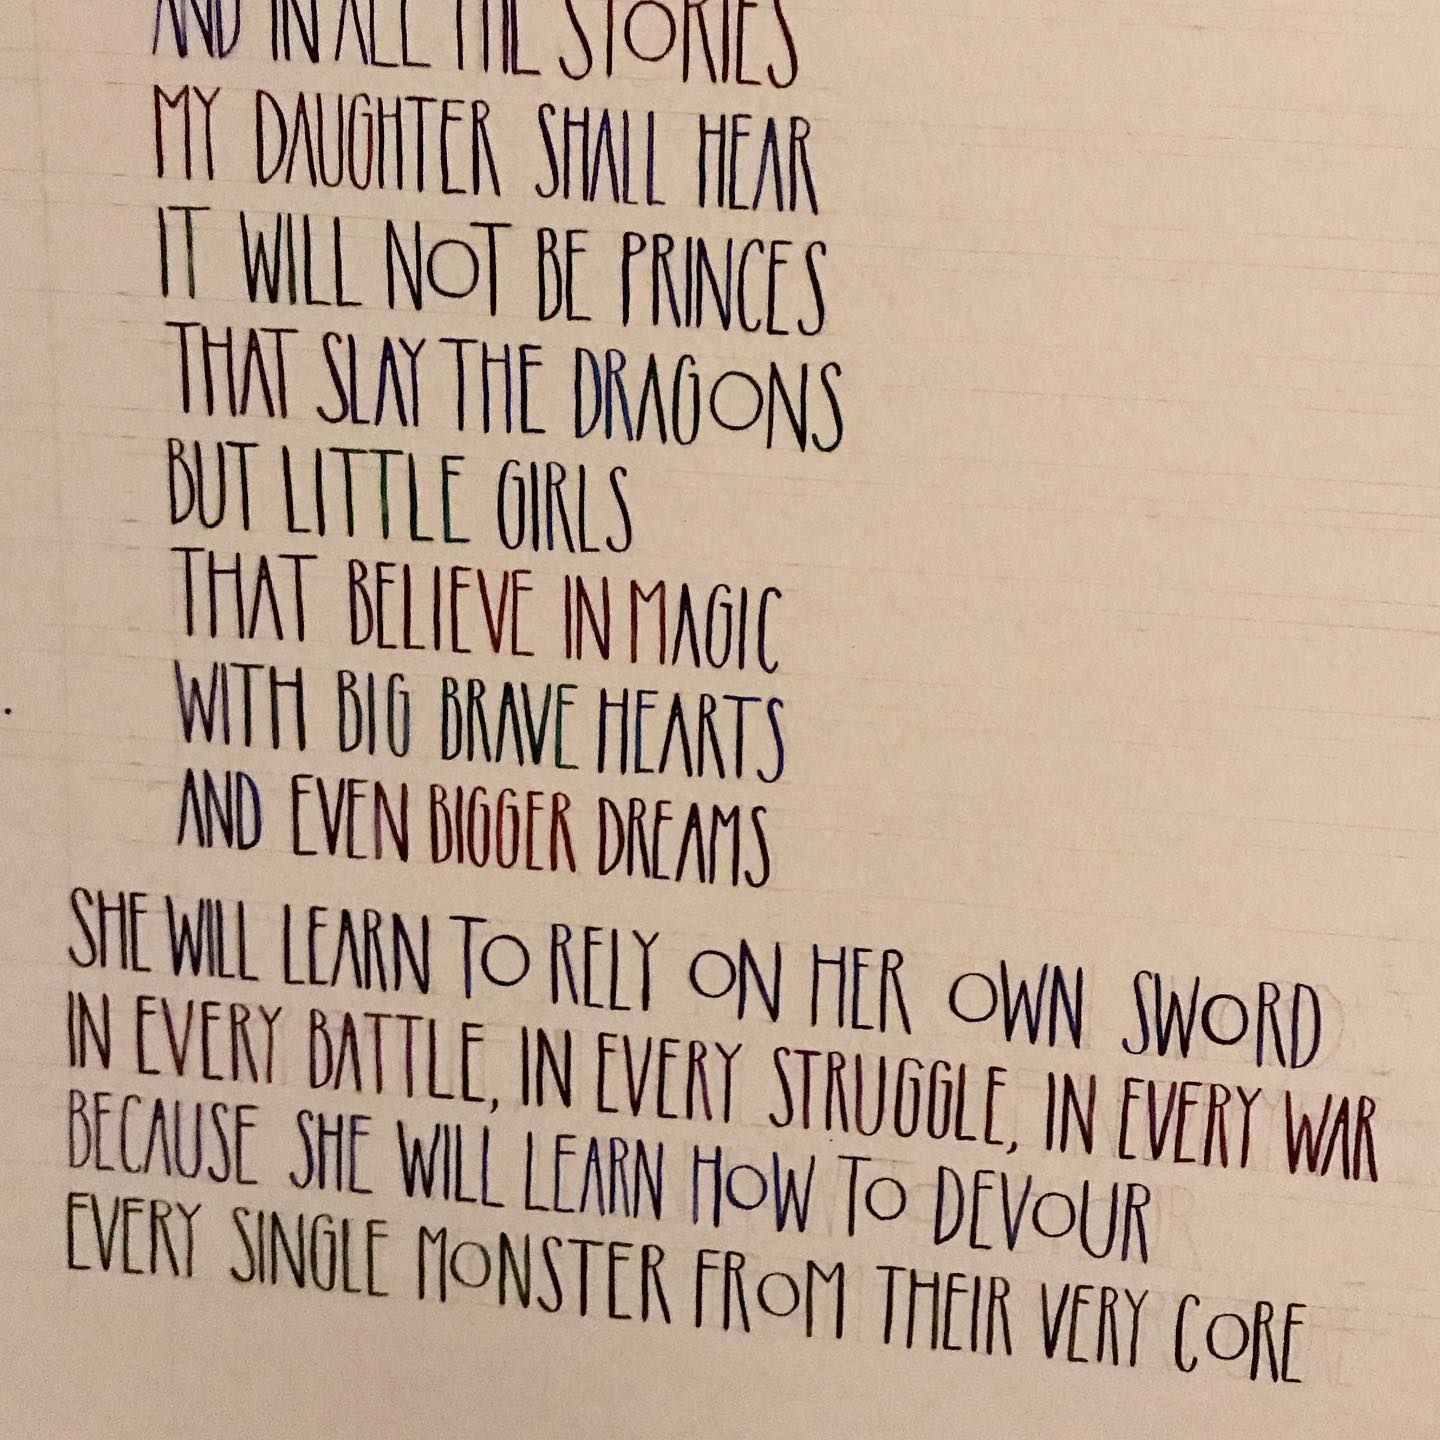 AND IN ALL THE STORIES
MY DAUGHTER SHALL HEAR
IT WILL NOT BE PRINCES
THAT SLAY THE DRAGONS
BUT LITTLE GIRLS
THAT BELIEVE IN MAGIC
WITH BIG BRAVE HEARTS
AND EVEN BIGGER DREAMS
SHE WILL LEARN TO RELY ON HER OWN SWORD
IN EVERY BATTLE, IN EVERY STRUGGLE, IN EVERY WAR
BECAUSE SHE WILL LEARN HOW TO DEVOUR
EVERY SINGLE MONSTER FROM THEIR VERY CORE